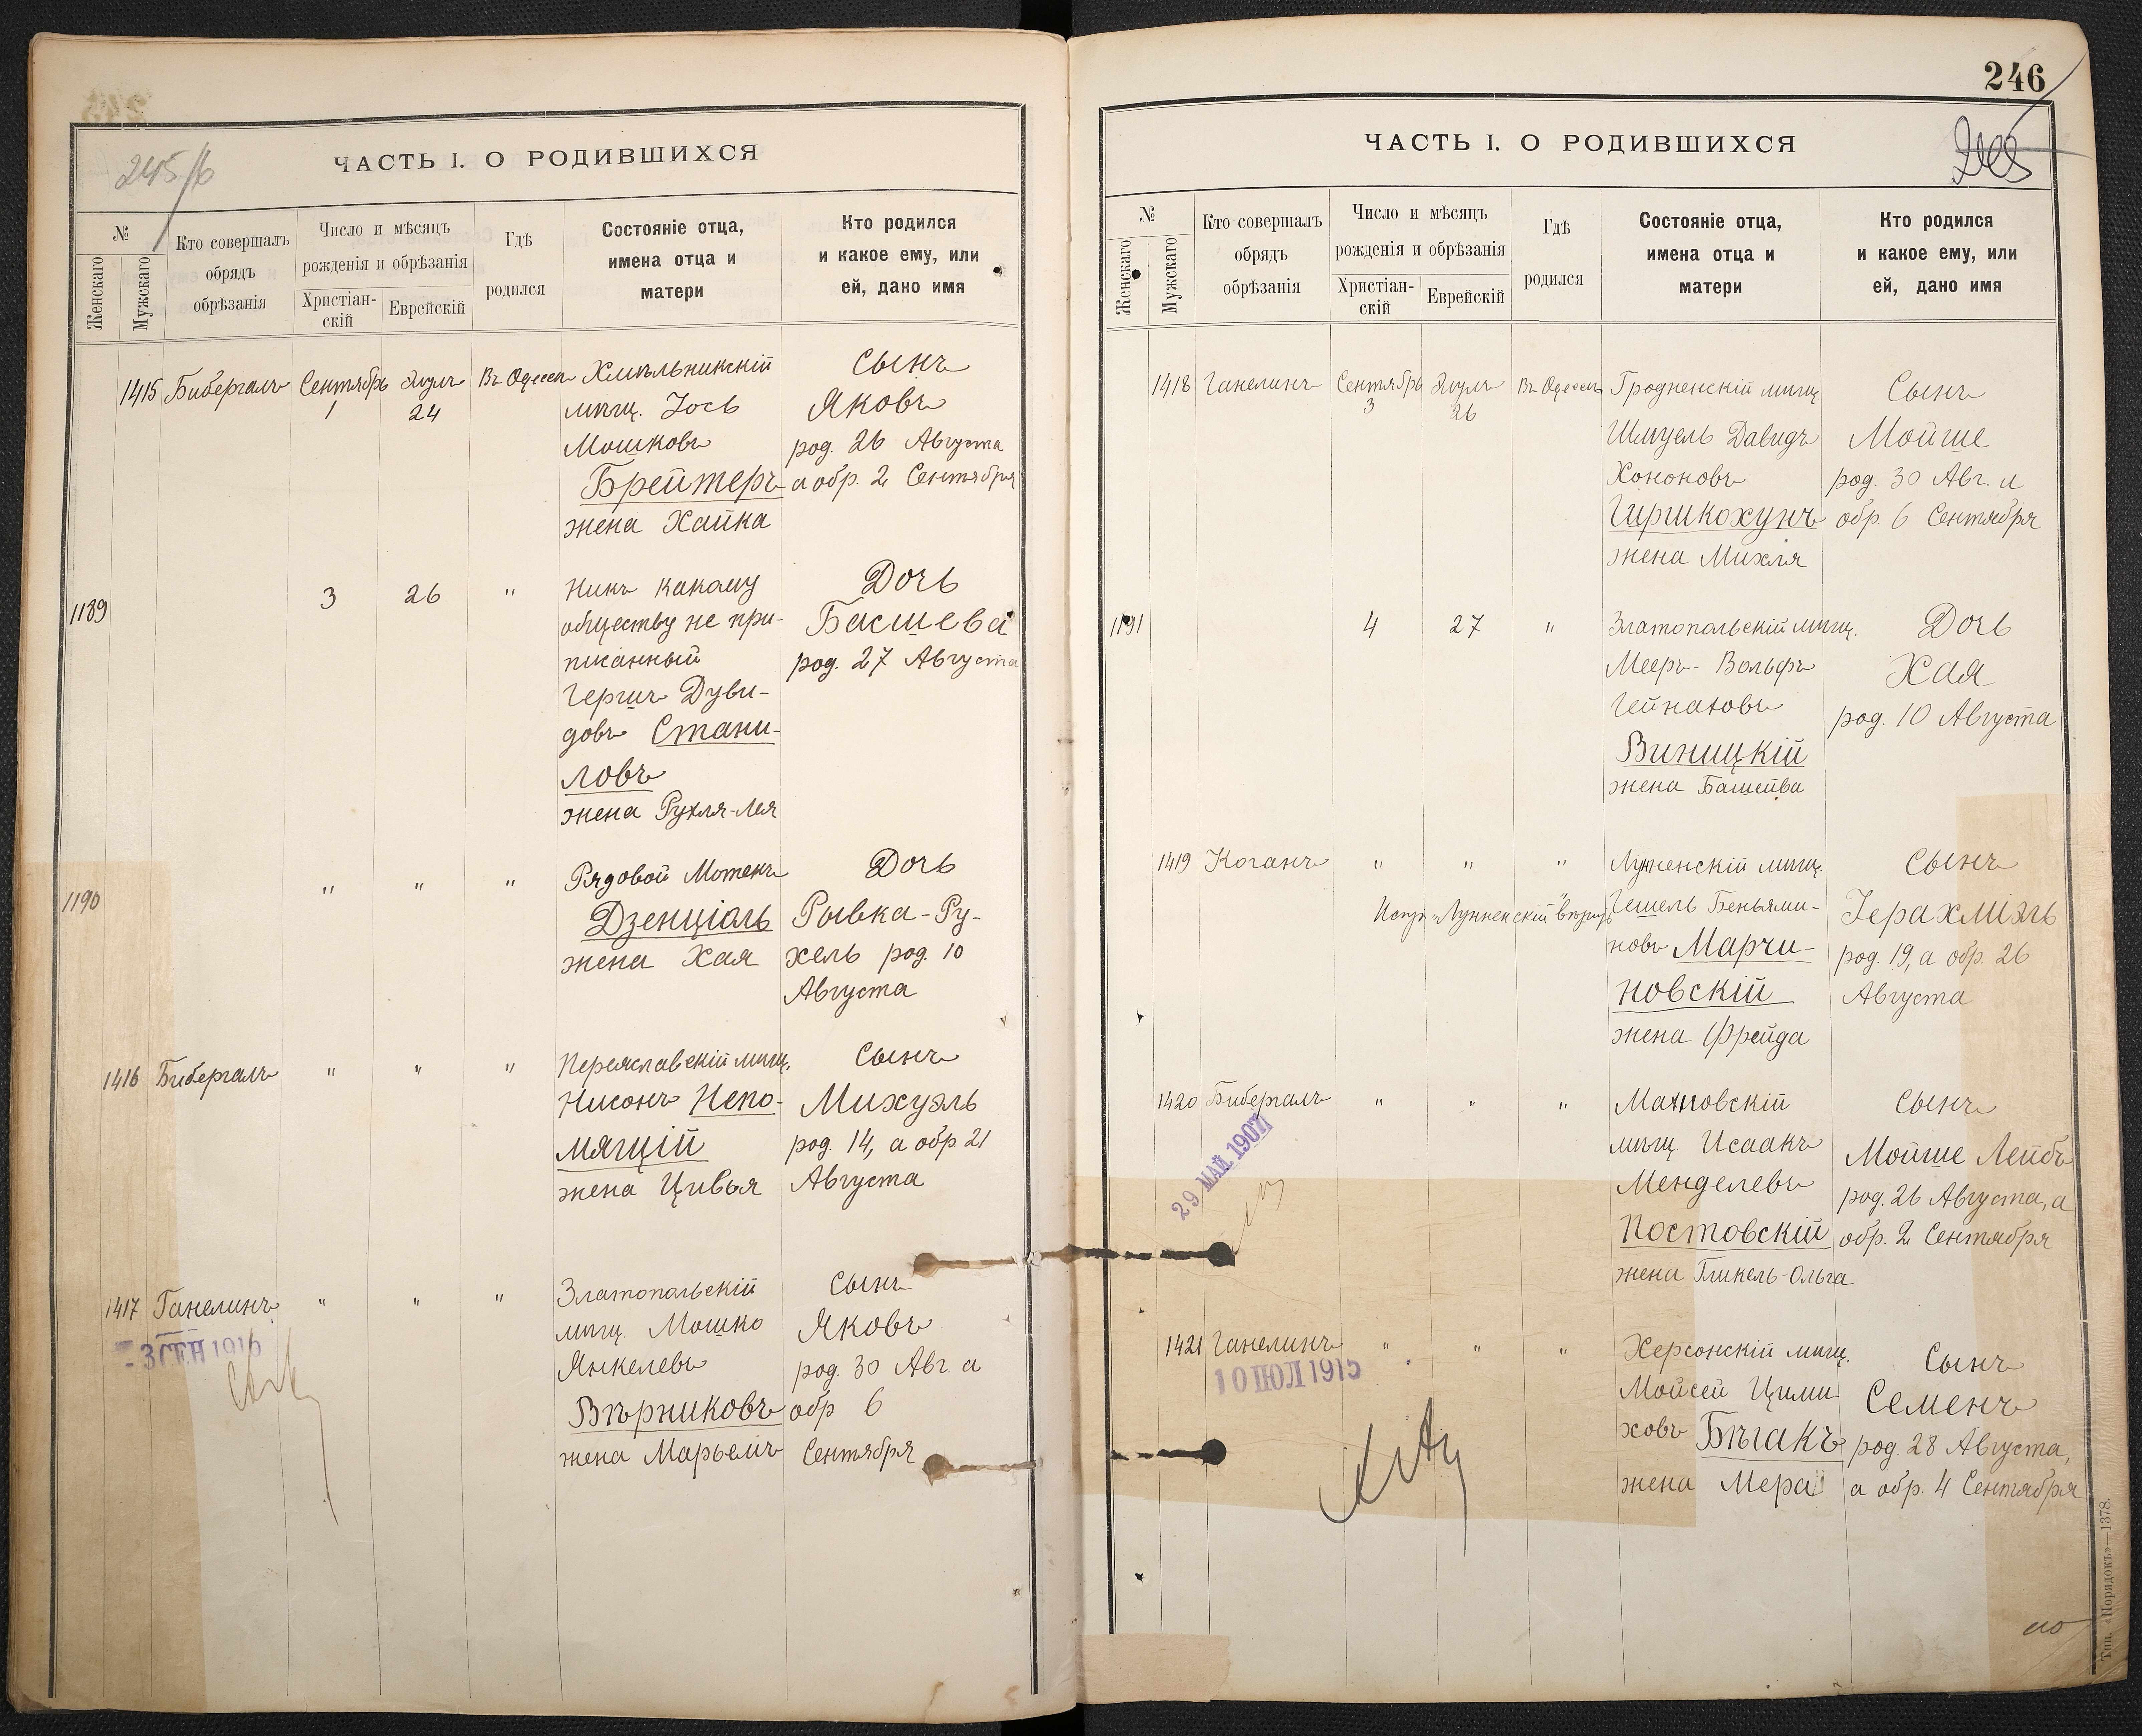 245/б
ЧАСТЬ I. О РОДИВШИХСЯ
№
Женскаго
Мужскаго
Кто совершалъ
обрядъ
обрѣзанія
Число и мѣсяцъ
рожденія и обрѣзанія
Христіан-
скій
Еврейскій
Гдѣ
родился
Состояніе отца,
имена отца и
матери
Кто родился
и какое ему, или
ей, дано имя
1415 Бибергалъ Сентябрь 1 Элулъ 24 Въ Одессѣ
Хмѣльникскій
мѣщ. Іось
Мошковъ
Брейтеръ
жена Хайка
Сынъ
Яковъ
род. 26 Августа
а обр. 2 Сентября
1189 3 26 "
Никъ какому
обществу не при-
писанный
Гершъ Дуви-
довъ Стани-
ловъ
жена Рухля-Лея
Дочь
Басшева
род. 27 Августа
1190 " " "
Рядовой Мотекъ
Дзенціолъ
жена Хая
Дочь
Рывка-Ру-
хель род. 10
Августа
1416 Бибергалъ " " "
Переяславскій мѣщ.
Нисонъ Непо-
мящій
жена Цивья
Сынъ
Михуэль
род. 14, а обр 21
Августа
1417 Ганелинъ " " "
- 3 СЕН 1916
Златопольскій
мѣщ. Мошко
Янкелевъ
Вѣрниковъ
жена Марьемъ
Сынъ
Яковъ
род. 30 Авг. а
обр 6
Сентября
246
ЧАСТЬ I. О РОДИВШИХСЯ
№
Женскаго
Мужскаго
Кто совершалъ
обрядъ
обрѣзанія
Число и мѣсяцъ
рожденія и обрѣзанія
Христіан-
скій
Еврейскій
Гдѣ
родился
Состояніе отца,
имена отца и
матери
Кто родился
и какое ему, или
ей, дано имя
1418 Ганелинъ Сентябрь 3 Элулъ 26 Въ Одессѣ
Гродненскій мѣщ
Шмуель Давидъ
Хононовъ
Гиршкохунъ
жена Михля
Сынъ
Мойше
род. 30 Авг. и
обр. 6 Сентября
1191 4 27 "
Златопольскій мѣщ.
Мееръ-Вольфъ
Гейнаховъ
Виницкій
жена Башейва
Дочь
Хая
род. 10 Августа
1419 Коганъ " " "
Лунненскій мѣщ.
Испр. "Лунненскій" вѣрить
Гешель Беньями-
новъ Марчи-
новскій
жена Фрейда
Сынъ
Іерахміэль
род. 19, а обр. 26
Августа
1420 Бибергалъ " " "
29 МАЙ 1907
Махновскій
мѣщ. Исаакъ
Менделевъ
Постовскій
жена Гликель-Ольга
Сынъ
Мойше Лейбъ
род. 26 Августа, а
обр. 2 Сентября
1421 Ганелинъ " " "
10 ІЮЛ 1915
Херсонскій мѣщ.
Мойсей Цими-
ховъ Бѣгакъ
жена Мера
Сынъ
Семенъ
род. 28 Августа,
а обр. 4 Сентября
Тип. «Порядокъ»—1378.